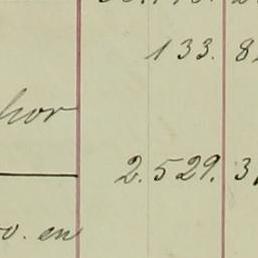 133. 8
hor
2.529. 3
o. en